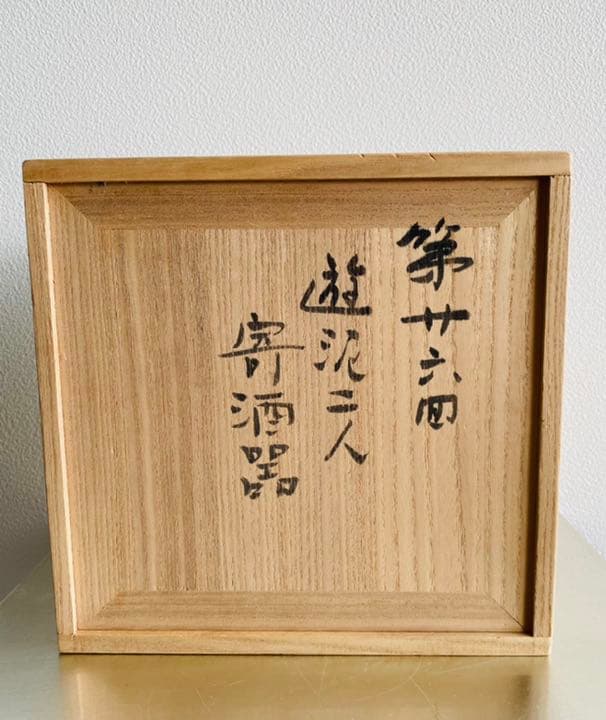 第廿六回
遊泥二人
寄酒器